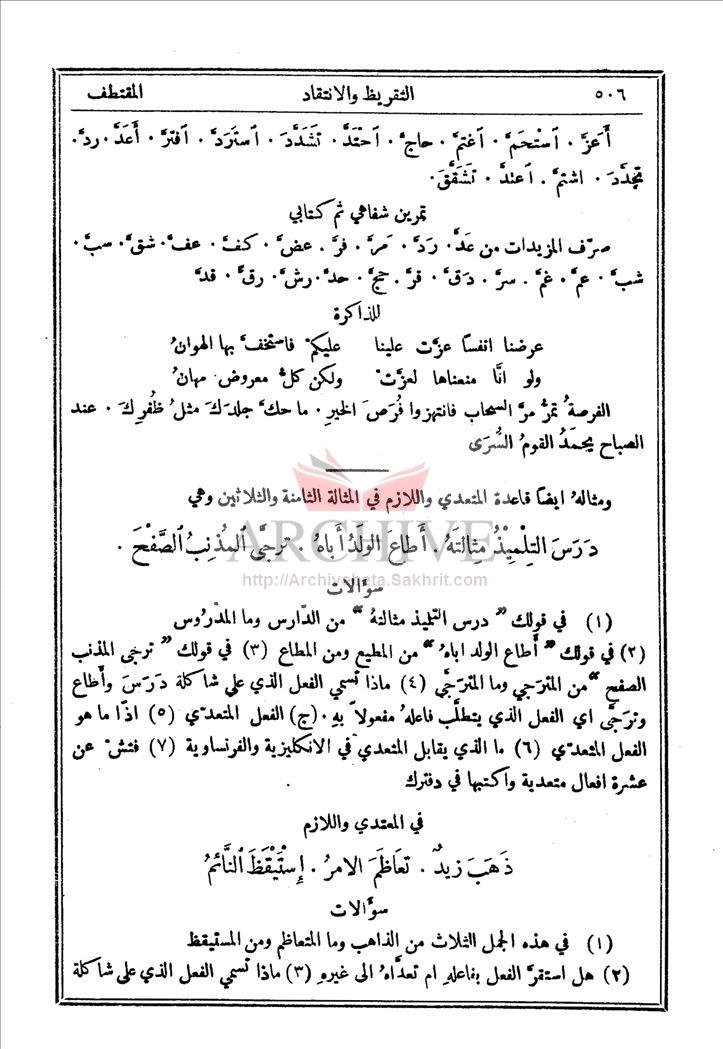 ٥٠٦ التقريظ والانتقاد المقتطف
أَعَزَّ ٠ اَسْتَحَمَّ ٠ اَغتمَّ ٠ حاجَّ ٠ اَحْتَدَّ ٠ تَشَدَّدَ ٠ اَستَرَدَّ ٠ اَفترَّ ٠ أَعَدَّ ٠ ردَّ ٠
تجدَّدَ ٠ اشتمَّ . اَعتدَّ ٠ تَشَقَّقَ٠
تمرين شفاهي ثم كتابي
صرّف المزيدات من عَدَّ ٠ رَدَّ ٠ مَرَّ ٠ فرَّ . عضَّ ٠ كفَّ ٠ عفَّ ٠ شقَّ ٠ سبَّ ٠
شبَّ ٠ عمَّ ٠ غمَّ . سرَّ ٠ دَقَّ ٠ قرَّ . حجَّ ٠ حدَّ ٠ رشَّ ٠ رقَّ ٠ قدَّ
للذاكرة
عرضنا انفسًا عزَّت علينا عليكمْ فاستخفَّ بها الهوانُ
ولو انَّا منعناها لعزَّتْ ولكن كلُّ معروض مهانُ
الفرصةُ تمرُّ مرَّ السحاب فانتهزوا فُرَصَ الخير ٠ ما حكَّ جلدَكَ مثلُ ظُفرِكَ ٠ عند
الصباح يحمَدُ القومُ السُّرَى
ومثالهُ ايضًا قاعدة المتعدي واللازم في المثالة الثامنة والثلاثين وهي
دَرَسَ التِلْمِيذُ مِثالتَهُ . أَطاعَ الولَدُ أَباهُ . ترجَّى اَلمُذنِبُ اَلصَّفْحَ .
ARCHIVE
http://Archivebeta.Sakhrit.com
سؤالات
(١) في قولك " درس التلميذ مثالتهُ " من الدَّارس وما المدْرُوس
(٢) في قولك " أَطاع الولد اباهُ " من المطيع ومن المطاع (٣) في قولك " ترجى المذنب
الصفح " من المترجي وما المترجَّى (٤) ماذا تسمي الفعل الذي على شاكلة دَرَسَ وأَطاع
وترَجَّى اي الفعل الذي يتطلَّب فاعلُه مفعولاً بهِ ٠ (ج) الفعل المتعدّي (٥) اذًا ما هو
الفعل المتعدّي (٦) ما الذي يقابل المتعدي في الانكليزية والفرنساوية (٧) فتشْ عن
عشرة افعال متعدية واكتبها في دفترك
في المعتدي واللازم
ذَهَبَ زيدٌ . تعاظَمَ الامرُ . إِستَيْقَظَ اَلنَّائمُ
سؤَالات
(١) في هذه الجمل الثلاث من الذاهب وما المتعاظم ومن المستيقظ
(٢) هل استقرَّ الفعل بفاعلهِ ام تعدَّاهُ الى غيرهِ (٣) ماذا تسمي الفعل الذي على شاكلة